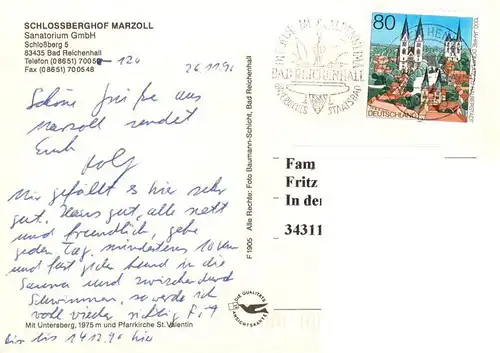 SCHLOSSBERGHOF MARZOLL
Sanatorium GmbH
Schloßberg 5
83435 Bad Reichenhall
Telefon (08651) 7005 -120
Fax (08651) 700548
26.11.96
Schöne Grüße aus
Marzoll sendet
Euch
Rolf
Mir gefällt es hier sehr
gut. Haus gut, alle nett
und freundlich, gehe
jeden Tag mindestens 10 km
und fast jeden Abend in die
Sauna und zwischendurch
Schwimmen, so werde ich
voll wieder richtig Fit
bin bis 14.12.96 hier
Mit Untersberg, 1975 m und Pfarrkirche St. Valentin
F 1905 Alle Rechte: Foto Baumann-Schicht, Bad Reichenhall
DIE QUALITÄTS
ANSICHTSKARTE
BAD REICHENHALL
BAYERISCHES STAATSBAD
80
DEUTSCHLAND
Fam
Fritz
In der
34311